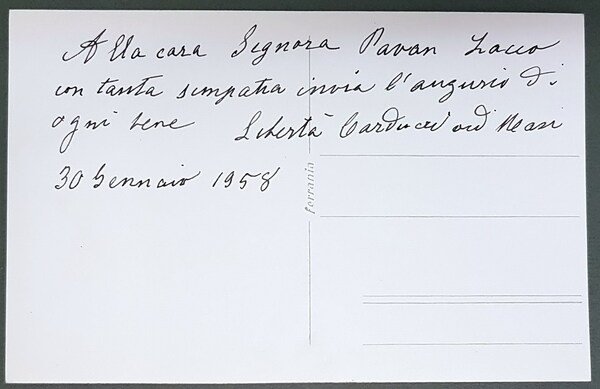 Alla cara Signora Pavan Lacco
con tanta simpatia invia l'augurio di
ogni bene Libertà Carducci ved Masi
30 Gennaio 1958
ferrania